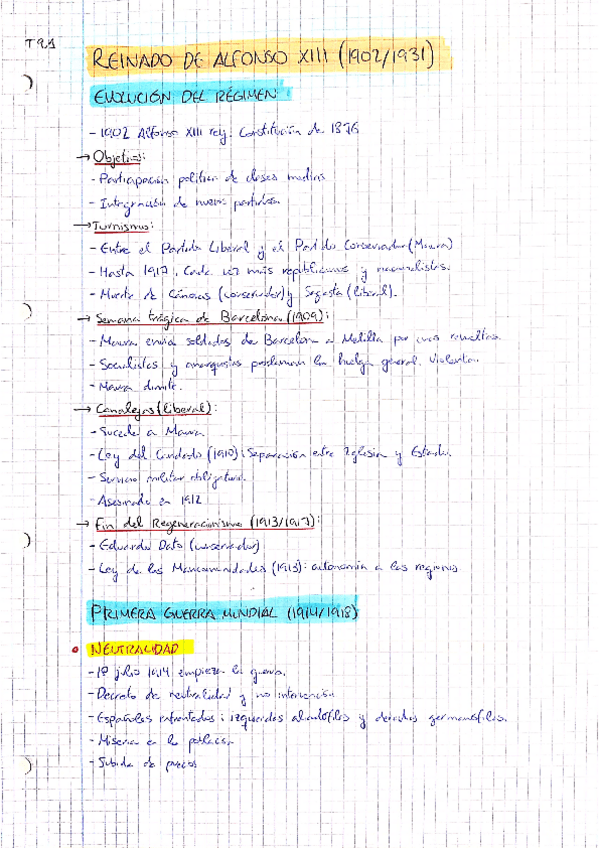 T9.1
REINADO DE ALFONSO XIII (1902/1931)
EVOLUCIÓN DEL RÉGIMEN:
- 1902 Alfonso XIII rey. Constitución de 1876
→ Objetivos:
- Participación política de clases medias
- Integración de nuevos partidos.
→ Turnismo:
- Entre el Partido Liberal y el Partido Conservador (Maura)
- Hasta 1917. Cada vez más republicanos y nacionalistas.
- Muerte de Cánovas (conservador) y Sagasta (liberal).
→ Semana trágica de Barcelona (1909):
- Maura envía soldados de Barcelona a Melilla por unas revueltas.
- Socialistas y anarquistas proclaman la huelga general. Violenta.
- Maura dimite.
→ Canalejas (liberal):
- Sucede a Maura
- Ley del Candado (1910): Separación entre Iglesia y Estado.
- Servicio militar obligatorio.
- Asesinado en 1912
→ Fin del Regeneracionismo (1913/1917):
- Eduardo Dato (conservador)
- Ley de las Mancomunidades (1913): autonomía a las regiones
PRIMERA GUERRA MUNDIAL (1914/1918)
• NEUTRALIDAD
- julio 1914 empieza la guerra.
- Decreto de neutralidad y no intervención
- Españoles enfrentados: izquierdas aliadófilas y derechas germanófilas.
- Miseria en la población
- Subida de precios